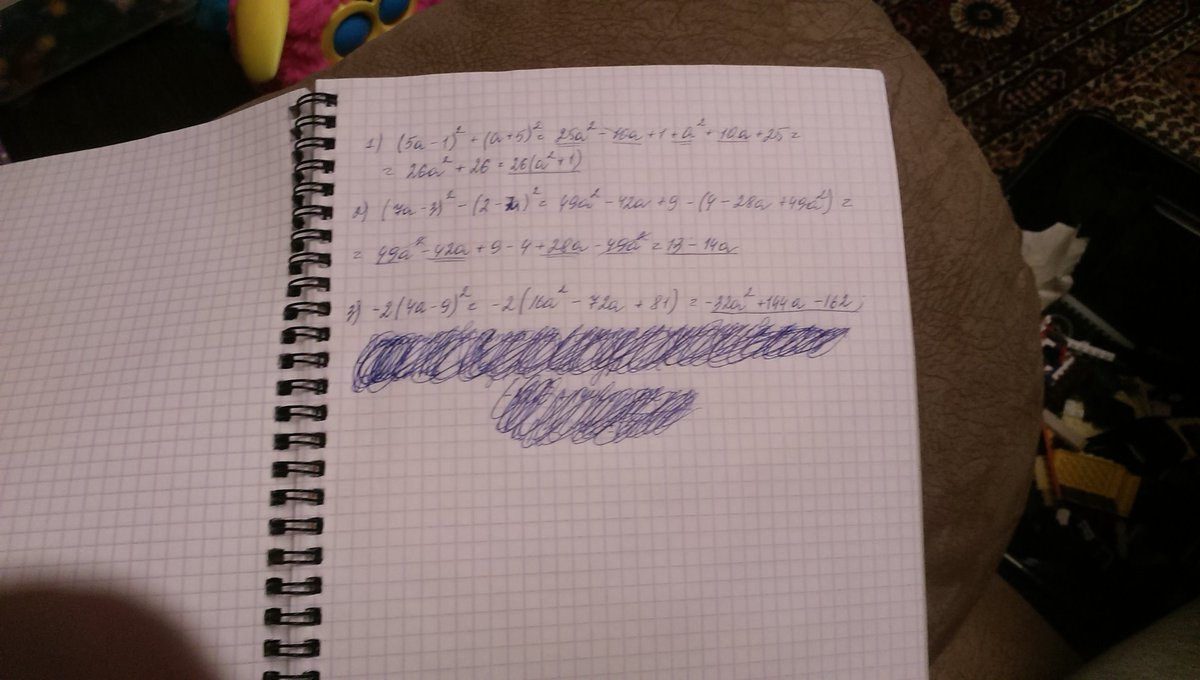 1) (5a-1)² + (a+5)² = 25a² - 10a + 1 + a² + 10a + 25 =
= 26a² + 26 = 26(a²+1)
2) (7a-3)² - (2- )² = 49a² - 42a + 9 - (4 - 28a + 49a²) =
= 49a² - 42a + 9 - 4 + 28a - 49a² = 13 - 14a
3) -2(4a-9)² = -2(16a² - 72a + 81) = -32a² + 144a - 162;